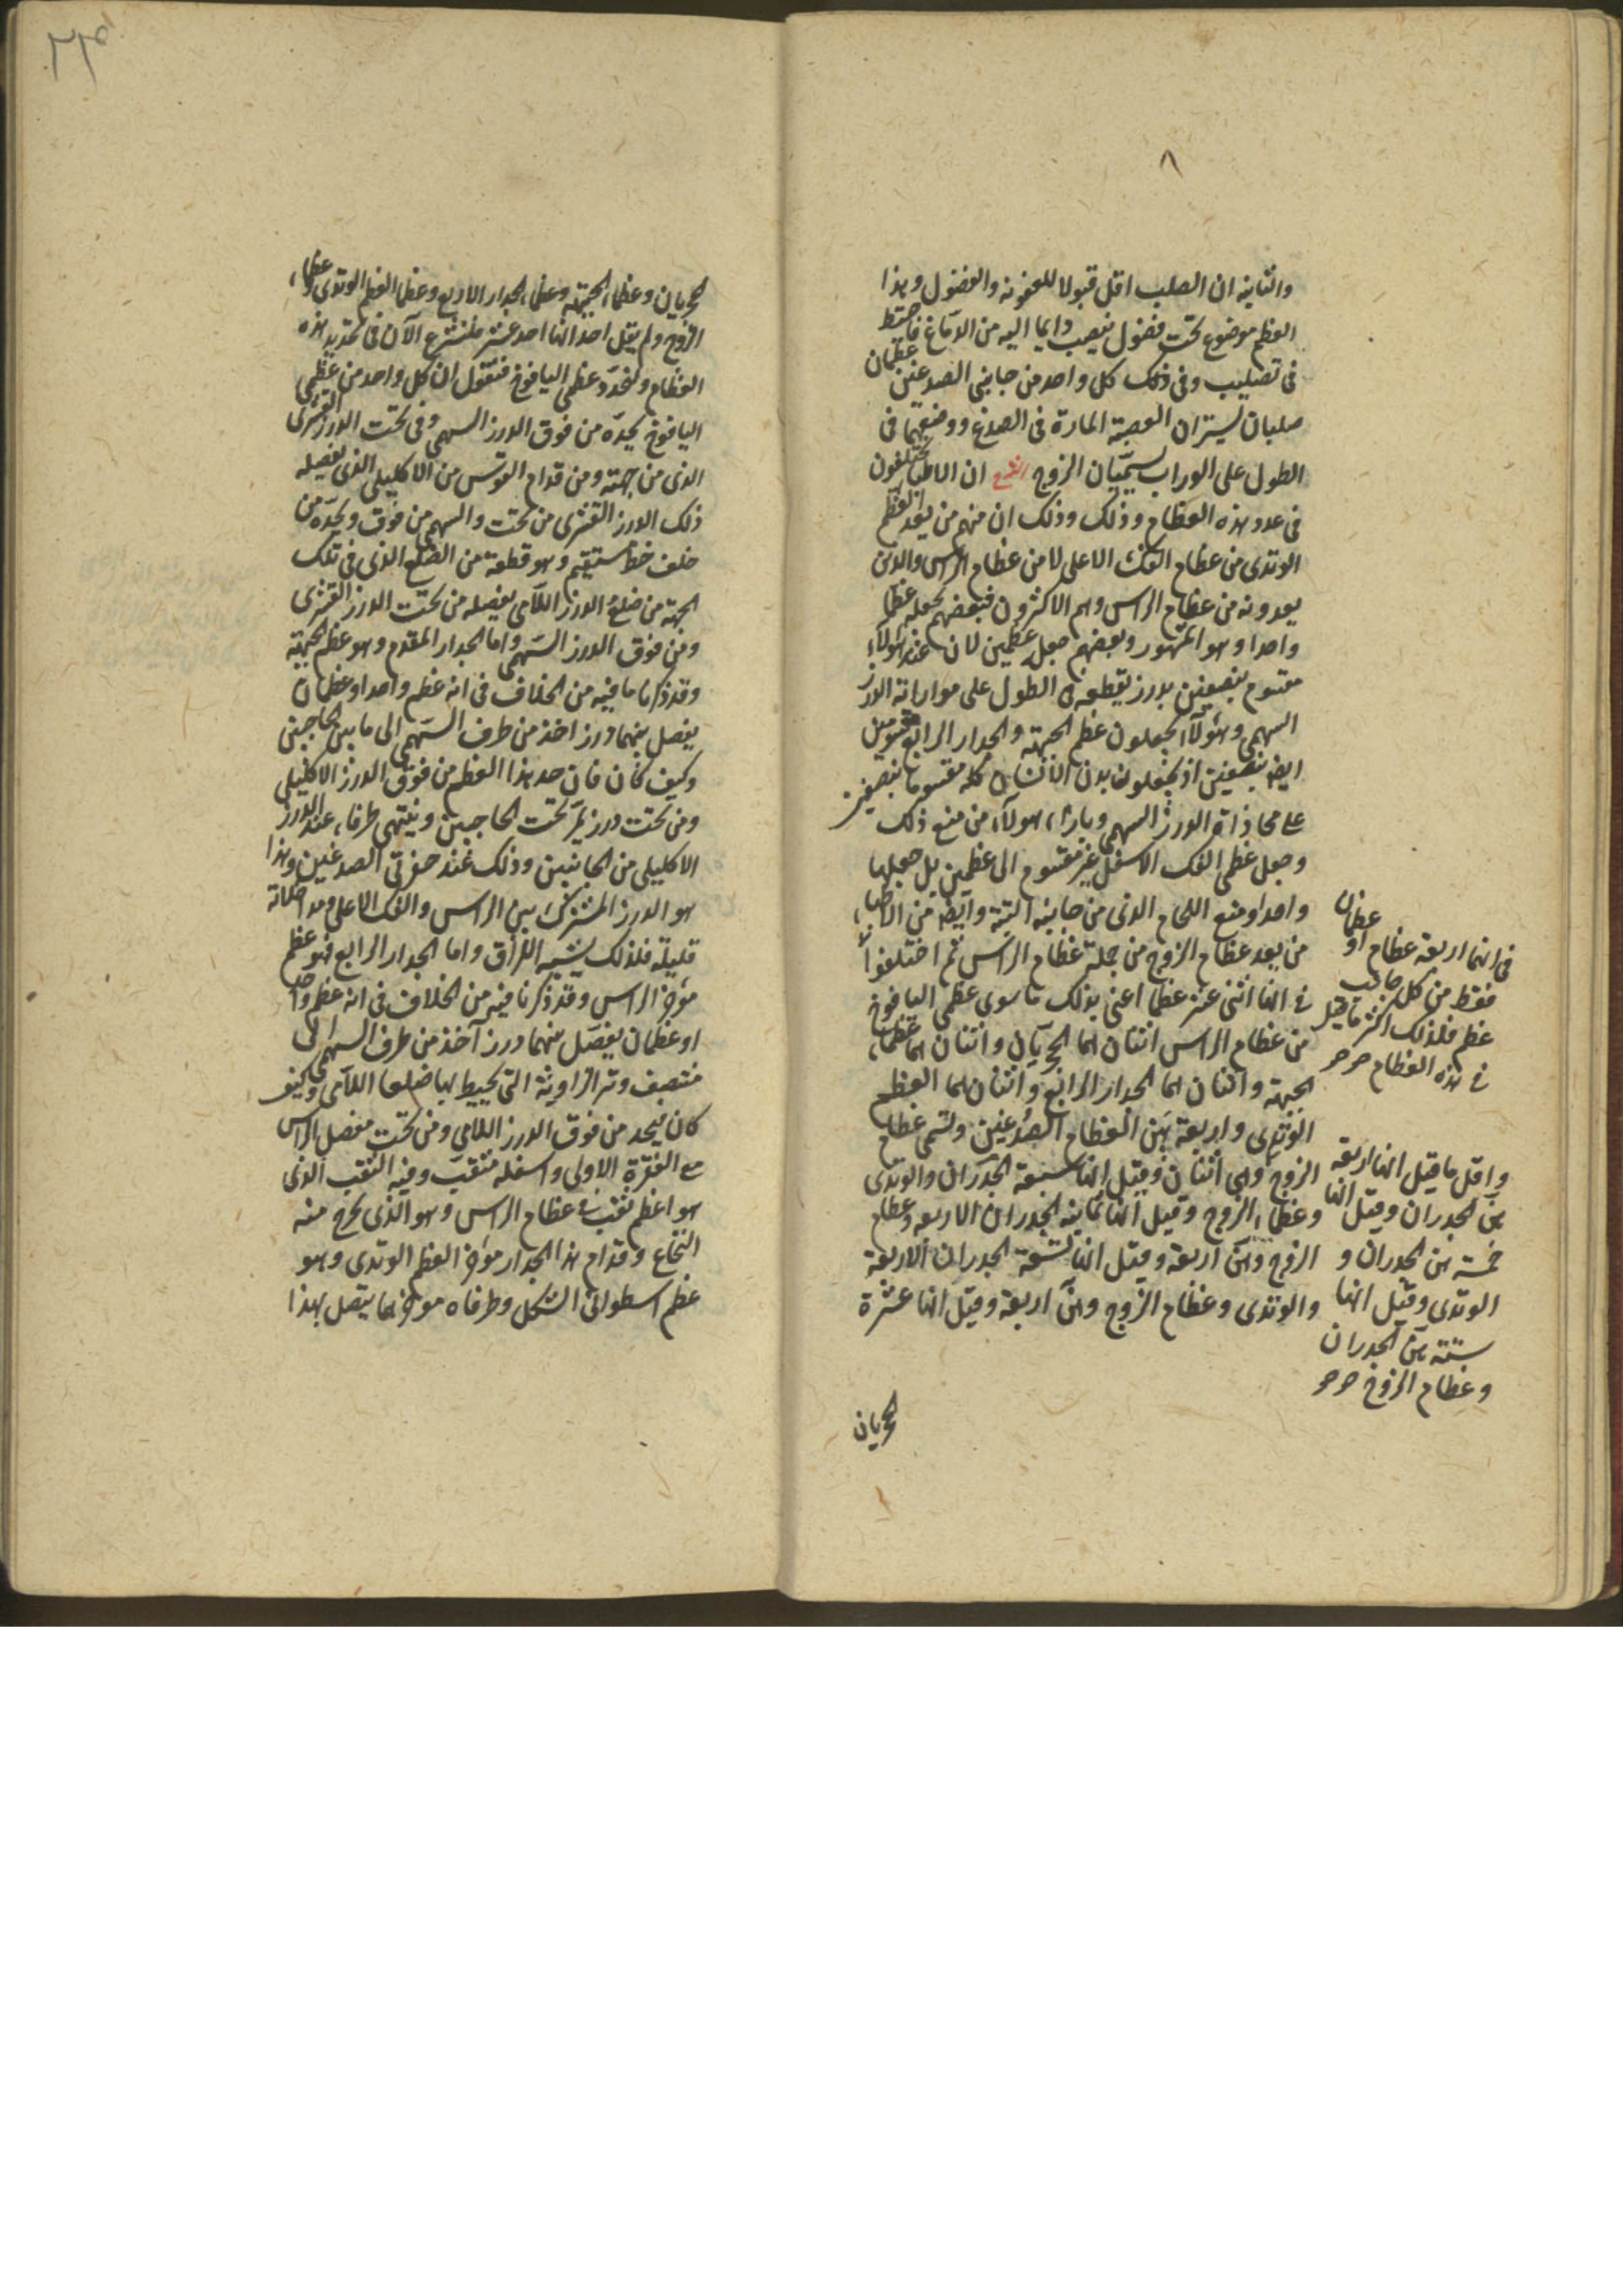 ٨
والثانية ان الصلب اقل قبولا للعفونة والفضول وهذا
العظم موضوع تحت فضول ينصب دايما اليه من الدماغ فاحتيط
فى تصليب وفى ذلك كل واحد من جانبى الصدغين عظمان
صلبان يستران العصبة المارة فى الصدغ ووضعهما فى
الطول على الوراب يسميان الزوج الشرح ان الاطبا يختلفون
فى عدد هذه العظام وذلك وذلك ان منهم من يعد العظم
الوتدى من عظام الفك الاعلى لا من عظام الراس والذين
يعدونه من عظام الراس وهم الاكثرون فبعضهم يجعله عظما
واحدا وهو المشهور وبعضهم جعل عظمين لان عند هؤلاء
مقسوم بنصفين بدرز يقطعه فى الطول على موازاة الدرز
السهمى وهؤلاء يجعلون عظم الجبهة والجدار الرابع مقسومين
ايضا بنصفين اذ يجعلون بدن الانسان كله مقسوما بنصفين
على محاذاة الدرز السهمى وبازاء هولاء من منع ذلك
وجعل عظمى الفك الاسفل غير مقسوم الى عظمين بل جعلها
واحدا ومنع اللحام الذى من جانبه البتة وايضا من الاطباء
من يعد عظام الزوج من جملة عظام الراس ثم اختلفوا
فى انهما اربعة عظام او عظمان
فقط من كل جانب
عظم فلذلك اكثر ما قيل
فى هذه العظام
فى انها اثنى عشر عظما اعنى بذلك ما سوى عظمى اليافوخ
من عظام الراس اثنان هما الحجريان واثنان هما عظما
الجبهة واثنان هما الجدار الرابع واثنان هما العظم
الوتدى واربعة هن العظام الصدغين وتسمى عظام
الزوج واقل ما قيل انها اربعة
هن الجدران وقيل انها
خمسة هن الجدران و
الوتدى وقيل انها
ستة هن الجدران
وعظام الزوج
الزوج وهى اثنان وقيل انها سبعة الجدران والوتدى
وعظماء الزوج وقيل انها ثمانية الجدران الاربعة وعظام
الزوج وهن اربعة وقيل انها تسعة الجدران الاربعة
والوتدى وعظام الزوج وهن اربعة وقيل انها عشرة
الحجريان
الحجريان وعظماء الجبهة وعظماء الجدار الرابع وعظما العظم الوتدى وعظماء
الزوج ولم يقل احد انها احد عشر فلنشرع الآن فى تحديد هذه
العظام ولنحدد عظمى اليافوخ فنقول ان كل واحد من عظمى
اليافوخ يحده من فوق الدرز السهمى وفى تحت الدرز القشرى
الذى من جهته ومن قدام القوس من الاكليلى الذى يفصله
ذلك الدرز القشرى من تحت والسهمى من فوق ويحده من
خلف خط مستقيم وهو قطعة من الضلع الذى فى تلك
الجهة من ضلع الدرز اللامى يفصله من تحت الدرز القشرى
ومن فوق الدرز السهمى واما الجدار المقدم وهو عظم الجبهة
وقد ذكرنا ما فيه من الخلاف فى انه عظم واحد او عظمان
يفصل بينهما درز اخذ من طرف السهمى الى ما بين الحاجبين
وكيف كان فان حد هذا العظم من فوق الدرز الاكليلى
ومن تحت درز يمر تحت الحاجبين وينتهى طرفاه عند الدرز
الاكليلى من الجانبين وذلك عند حفرتى الصدغين وهذا
هو الدرز المشترك بين الراس والفك الاعلى
قليلة فلذلك يشبه اللزاق واما الجدار الرابع فهو عظم
مؤخر الراس وقد ذكرنا فيه من الخلاف فى انه عظم واحد
او عظمان يفصل بينهما درز آخذ من طرف السهمى الى
منتصف وتر الزاوية التى يحيط بها ضلعا اللامى وكيف
كان يحد من فوق الدرز اللامى ومن تحت مفصل الراس
مع الفقرة الاولى واسفله مثقب وفيه الثقب الذى
هو اعظم ثقب فى عظام الراس وهو الذى يخرج منه
النخاع وقدام هذا الجدار مؤخر العظم الوتدى وهو
عظم اسطوانى الشكل وطرفاه مؤخرهما يتصل بهذا